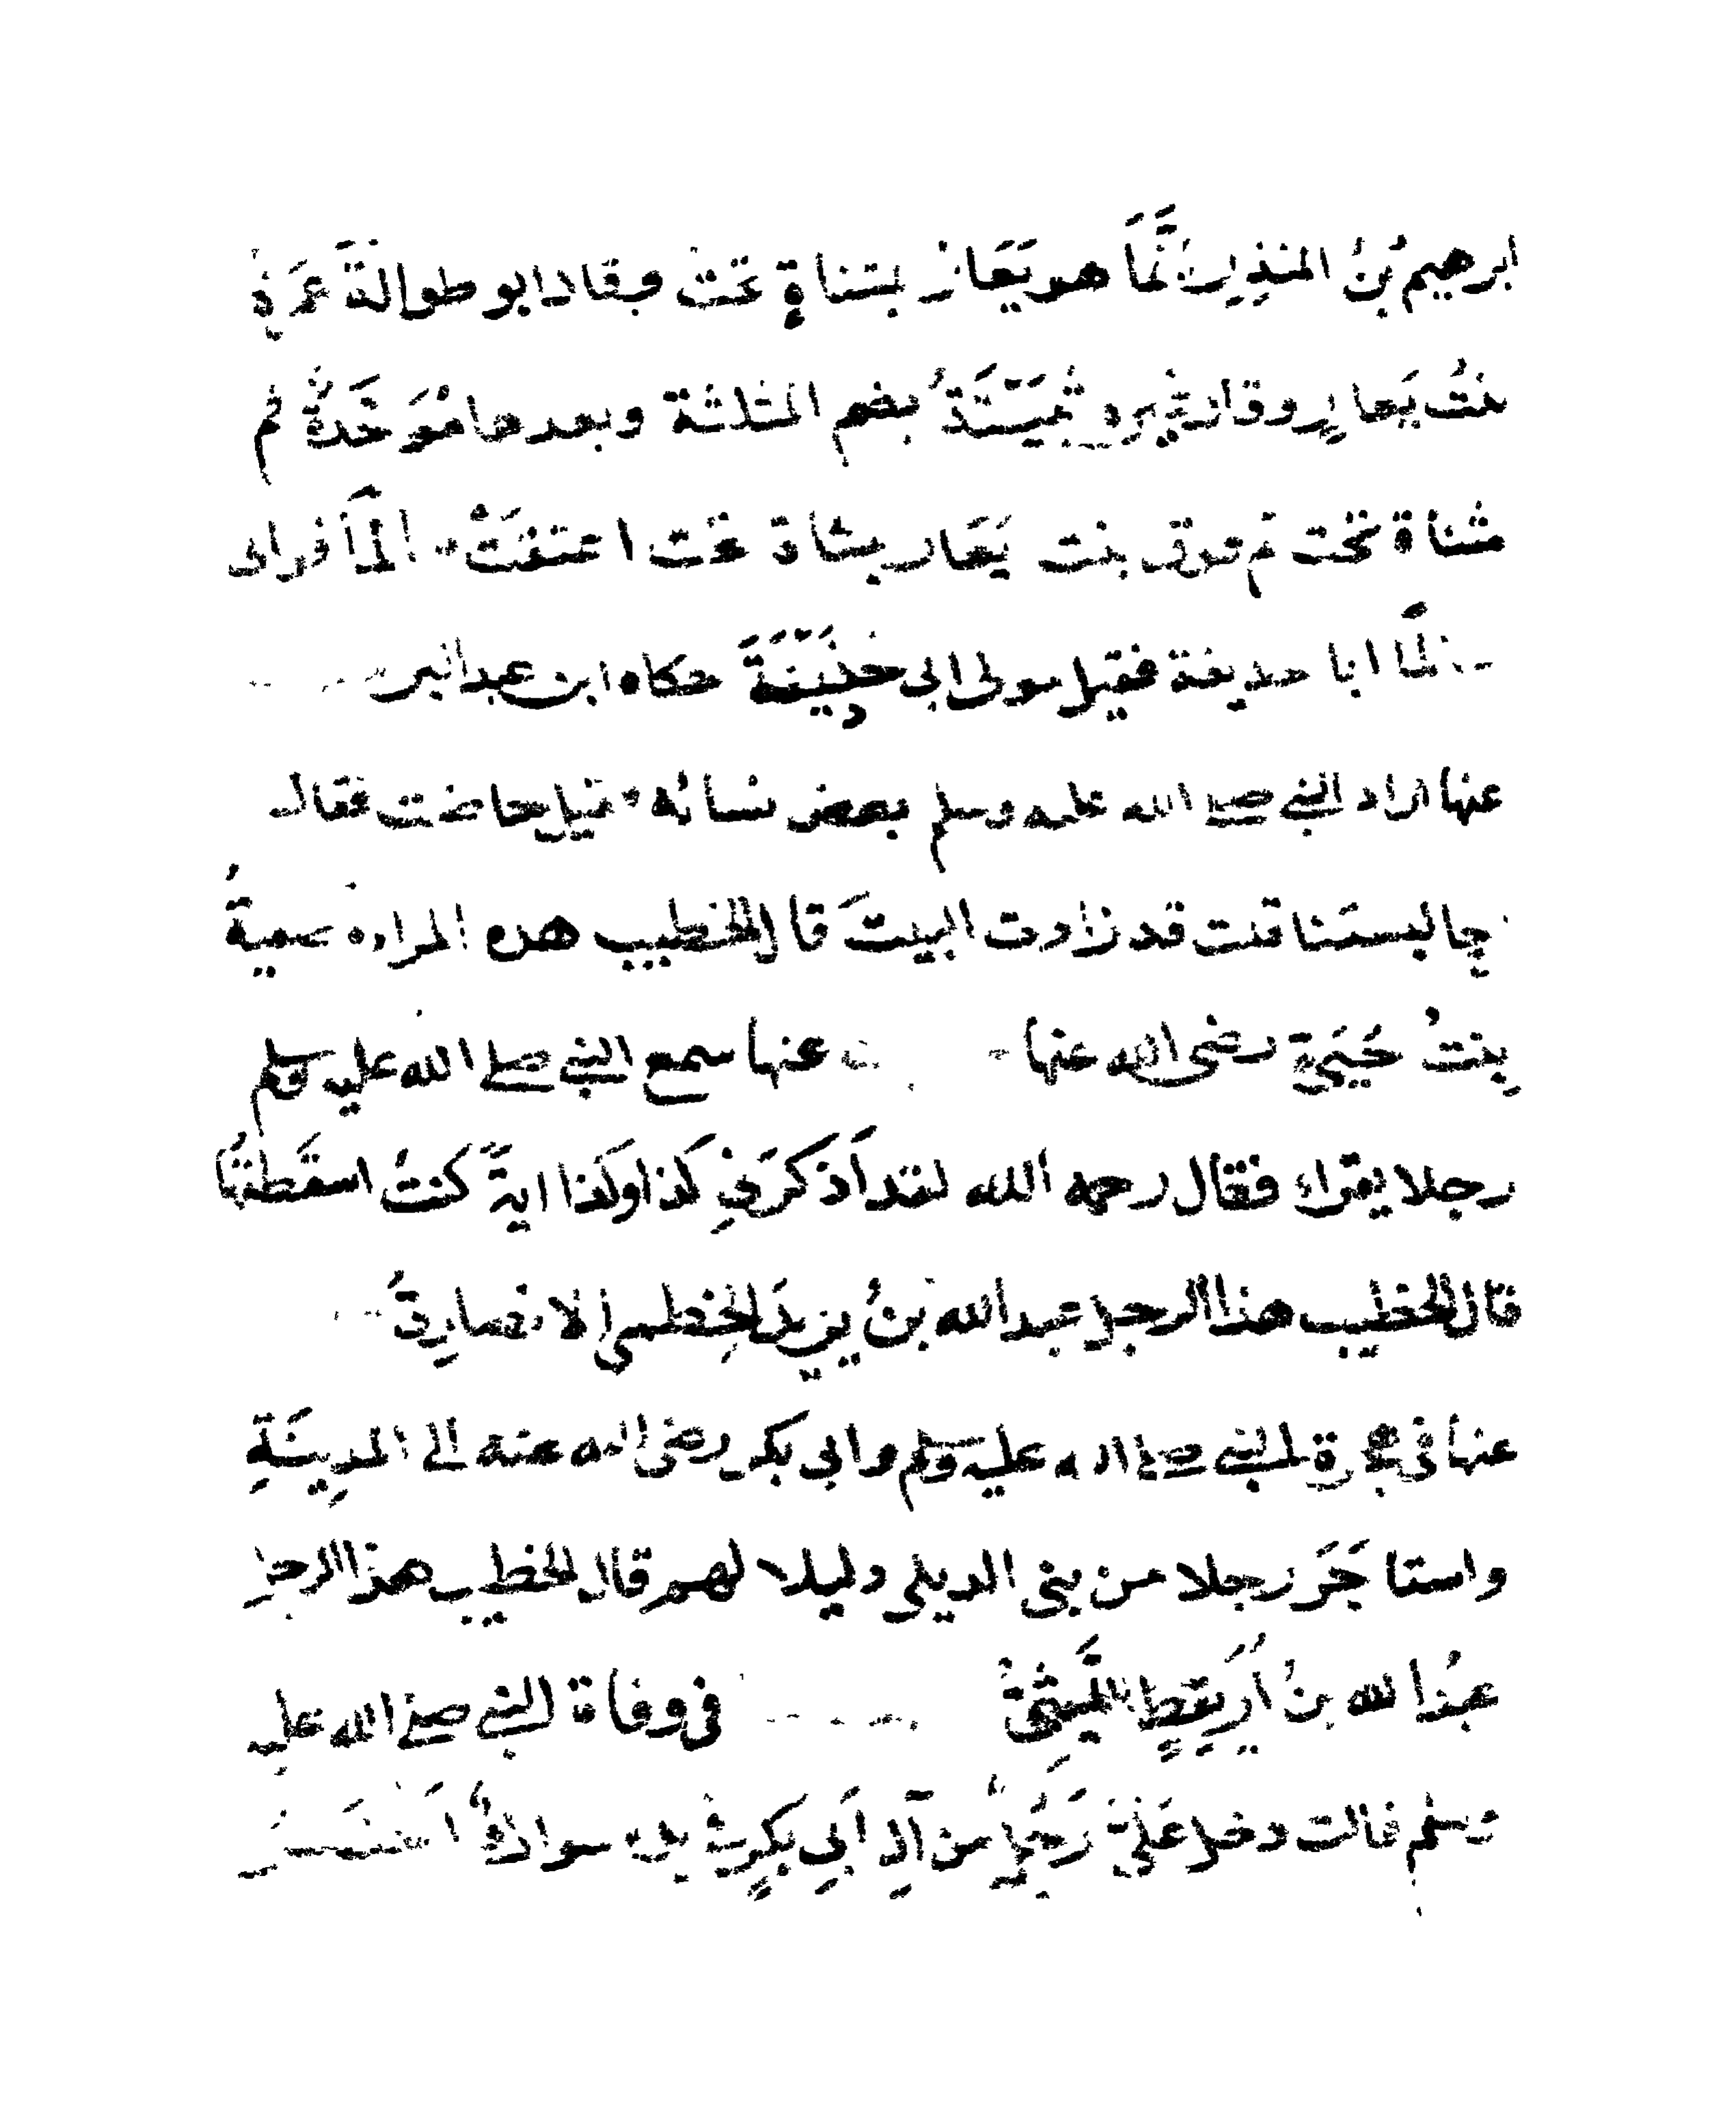 ابرهيم بنُ المنذر اِنَّمَا هو يَعَار بمثناةٍ تحت وقال ابو طوالةَ عَمرَة
بنتُ يَعارٍ وقال غيره ثُبَيْتَةُ بضم المثلثة وبعدها مُوَحَّدَةٌ ثم
مثناة تحت ثم فوق بنت يَعَار بمثناة تحت اعتقَتْ سالمًا فوالى
سالمًا ابا حذيفة فقيل مولى ابى حُذَيْفَةَ حكاه ابن عبد البر
عنها اراد النبى صلى الله عليه وسلم بعض نسائه فقيل حاضت فقال
احابستنا قلت قد زارت البيتَ قال الخطيب هذه المراءه سمية
بنتُ حُيَيٍّ رضى الله عنها عنها سمع النبى صلى الله عليه وسلم
رجلا يقراء فقال رحمه الله لقد اَذكرَنِى كذا وكذا ايةً كنتُ اسقَطتُها
قال الخطيب هذا الرجل عبد الله بنُ يزيدَ الخِطمى الانصارِىُّ
عنها فى هجرة النبى صلى الله عليه وسلم وابى بكر رضى الله عنه الى المدِينَةِ
واستاجَرَ رجلا من بنى الديلى دليلا لهم قال الخطيب هذا الرجل
عبدُ الله بنُ اُرَيقِطٍ اللَّيثِىُّ فى وفاة النبى صلى الله عليه
وسلم قالت دخل عَلَىَّ رَجُلٌ من آلِ اَبِى بكرٍ فى يده سواكٌ اَخْضَر